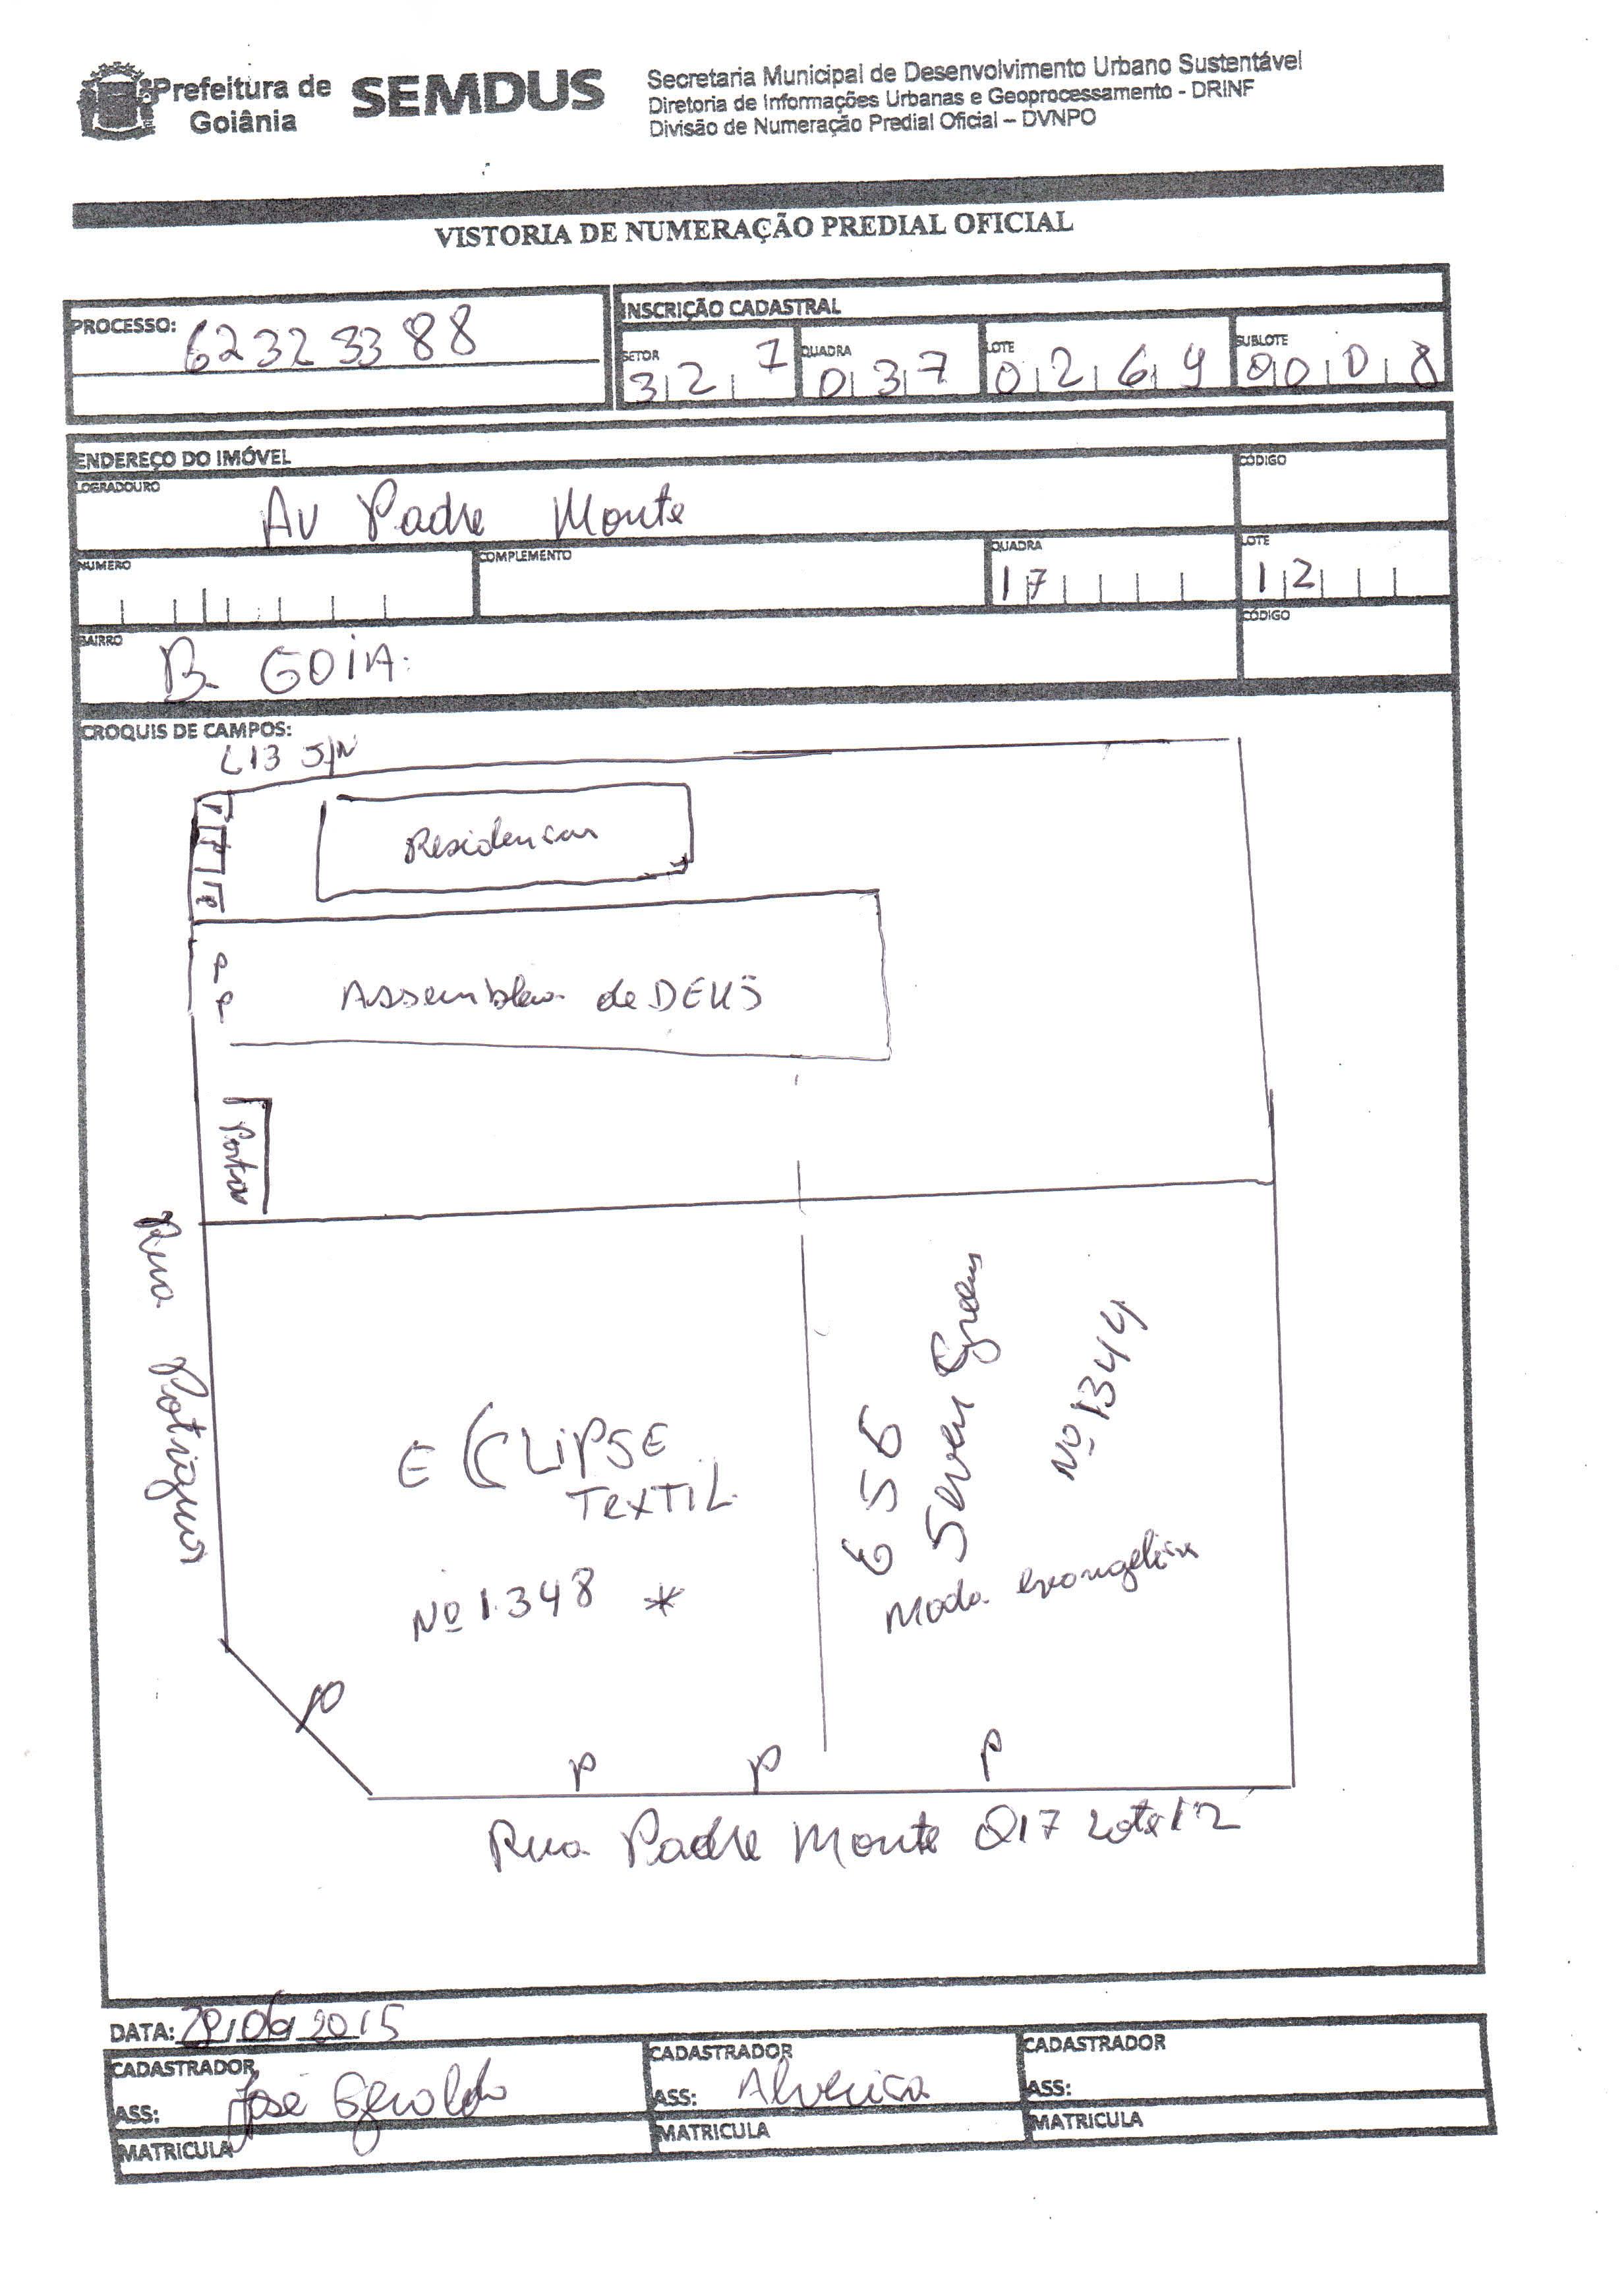 Prefeitura de Goiânia
SEMDUS
Secretaria Municipal de Desenvolvimento Urbano Sustentável
Diretoria de Informações Urbanas e Geoprocessamento - DRINF
Divisão de Numeração Predial Oficial – DVNPO
VISTORIA DE NUMERAÇÃO PREDIAL OFICIAL
PROCESSO: 62323388
INSCRIÇÃO CADASTRAL
SETOR 327 QUADRA 037 LOTE 0269 SUBLOTE 0008
ENDEREÇO DO IMÓVEL
LOGRADOURO Av Padre Monte CÓDIGO
NUMERO COMPLEMENTO QUADRA 17 LOTE 12
BAIRRO B. GOIA. CÓDIGO
CROQUIS DE CAMPOS:
L13 S/N
Residencia
P
P
P
Assembleia de DEUS
P
P
Portão
Rua Potiguar
ECLIPSE
TEXTIL
Nº 1.348 *
Seven
Nº 1344
Moda evangelica
P
P
P
P
Rua Padre Monte Q17 Lote 12
DATA: 29/06/2015
CADASTRADOR CADASTRADOR CADASTRADOR
ASS: José Geraldo ASS: ASS:
MATRICULA MATRICULA MATRICULA